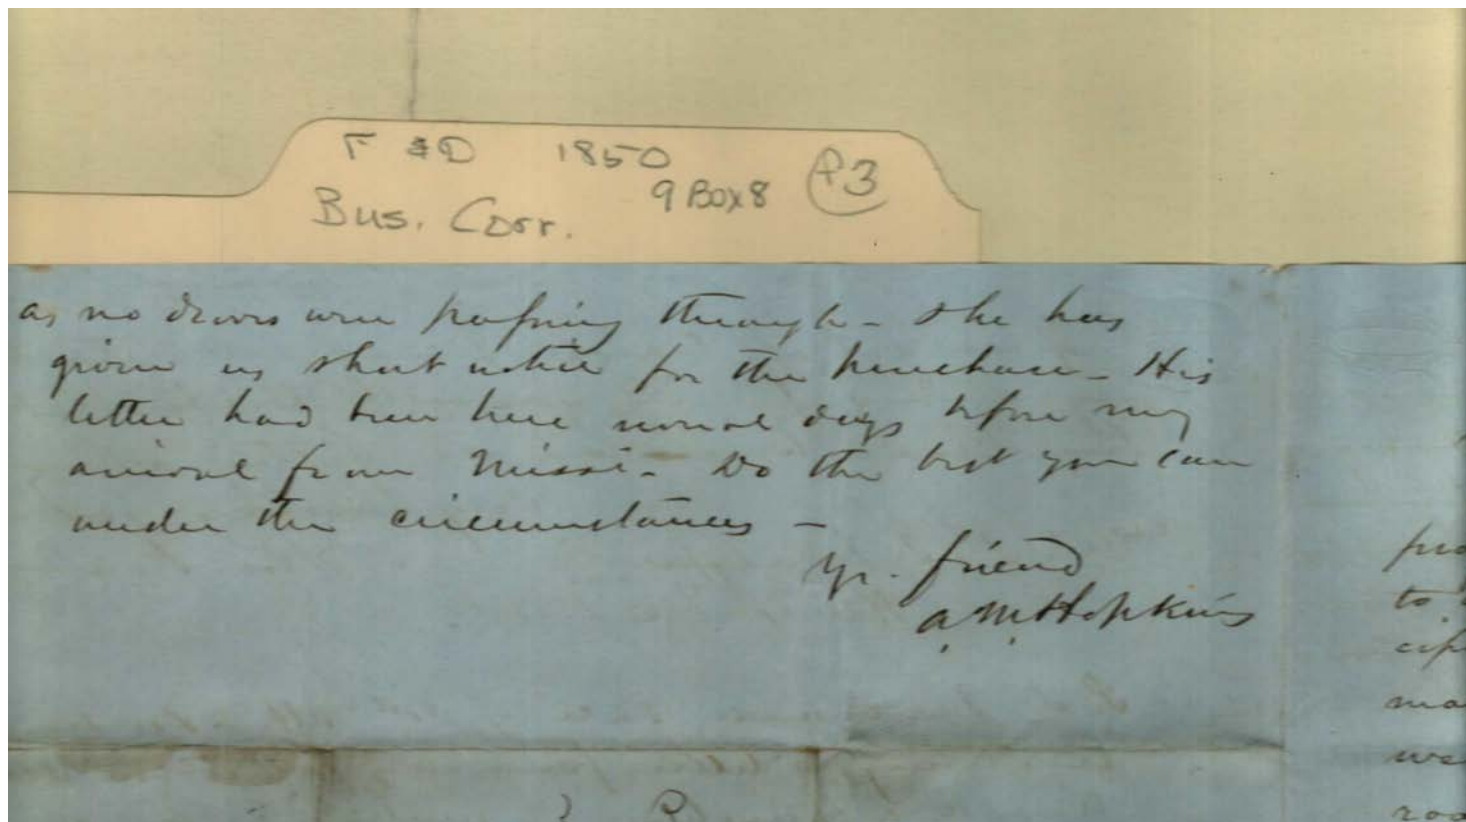 F & D 1850
9 Box 8 P3
Bus. Corr.
as no drovers were passing through - She has
given us short notice for the purchase - His
letter had been here several days before my
arrival from Missi - Do the best you can
under the circumstances -
yr. friend
A M Hopkins
to
ma
we